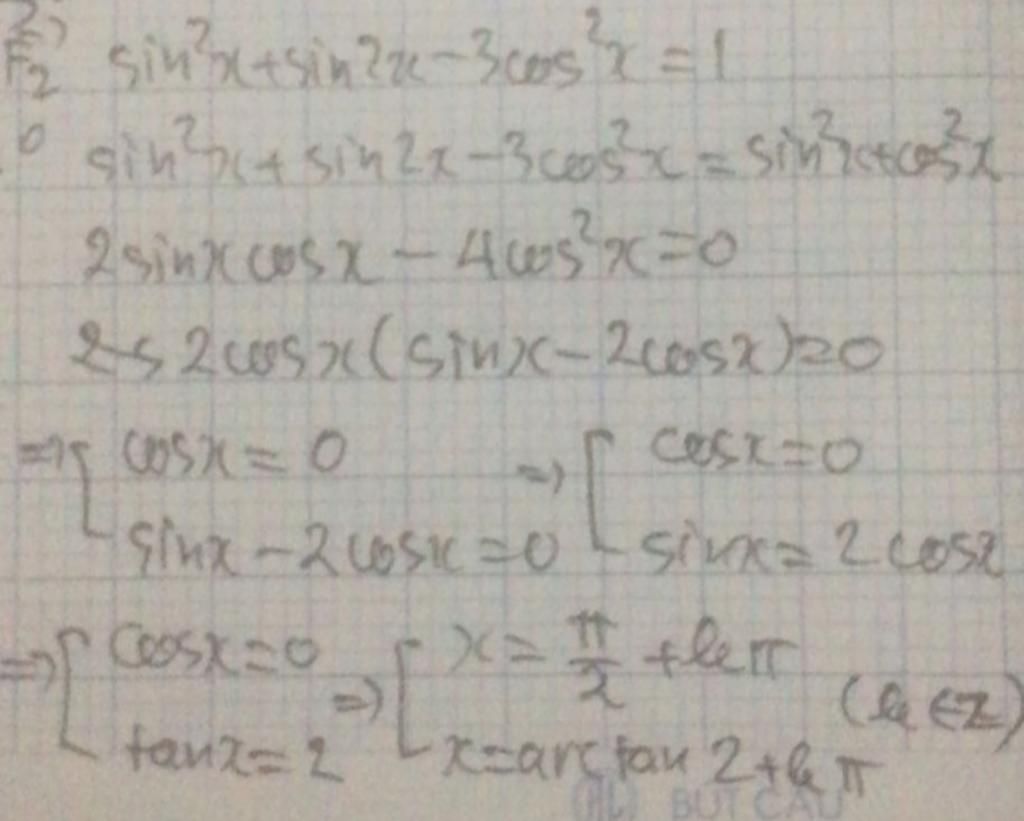 2)
F2 sin²x+sin2x-3cos²x=1
0 sin²x+sin2x-3cos²x=sin²x+cos²x
2sinxcosx-4cos²x=0
2cosx(sinx-2cosx)=0
=> [ cosx=0 => [ cosx=0
sinx-2cosx=0 sinx=2cosx
=> [ cosx=0 => [ x=π/2+kπ (k∈Z)
tanx=2 x=arctan2+kπ
BUT